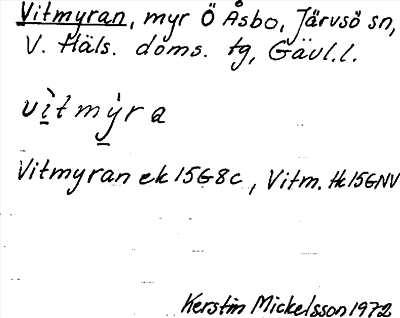 Vitmyran, myr Ö Åsbo, Järvsö sn,
V. Häls. doms. tg, Gävl.l.
vì̱tmỳ̱ra
Vitmyran ek 15G8c, Vitm. Hk 15GNV
Kerstin Mickelsson 1972